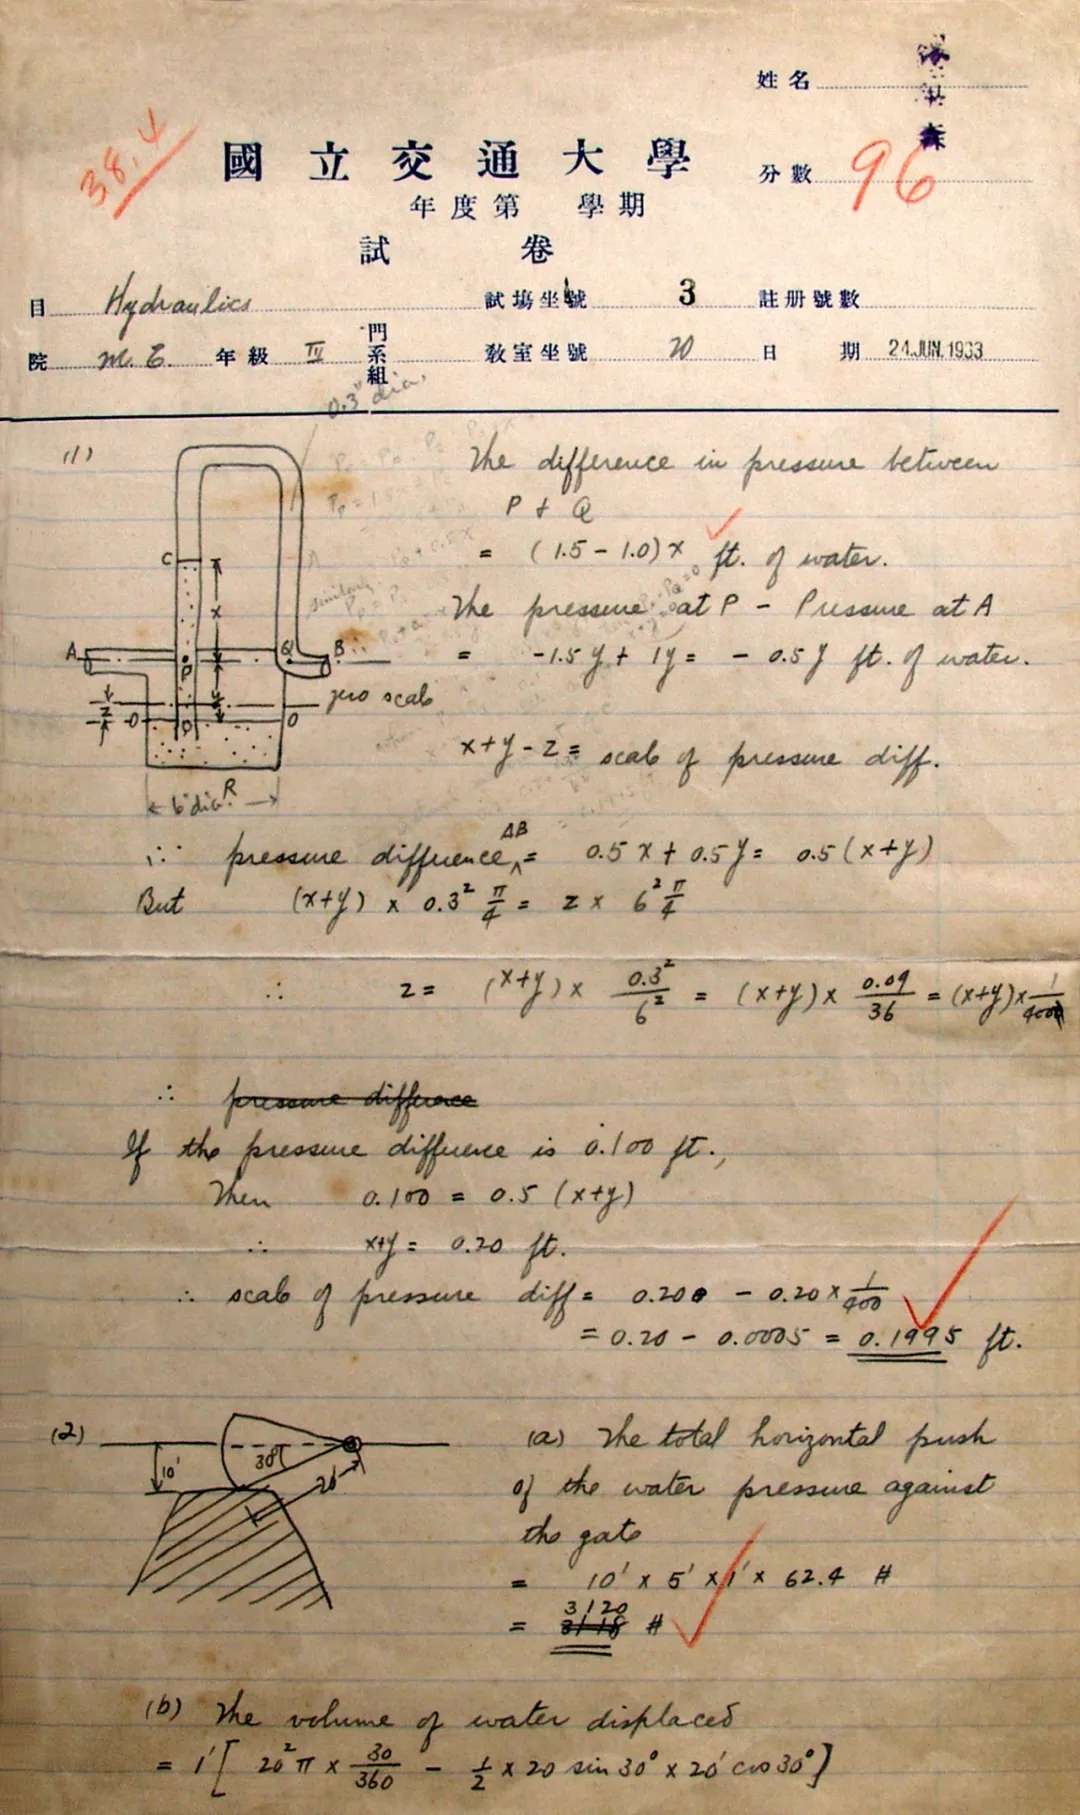 姓名
38.4
國立交通大學
分數 96
年度第 學期
試 卷
目 Hydraulics 試場坐號 3 註册號數
院 M.E. 年級 IV 門系組 教室坐號 20 日 期 24.JUN.1933
0.3" dia.
(1)
The difference in pressure between
P & Q
= (1.5 - 1.0) x ft. of water.
The pressure at P - Pressure at A
= -1.5 y + 1y = - 0.5 y ft. of water.
C
x
A P Q B
zero scale
z O y O
D
R
6" dia.
x+y-z = scale of pressure diff.
∴ pressure difference AB = 0.5 x + 0.5 y = 0.5 (x+y)
But (x+y) x 0.3² π/4 = z x 6² π/4
∴ z = (x+y) x 0.3²/6² = (x+y) x 0.09/36 = (x+y) x 1/400
∴ pressure difference
If the pressure difference is 0.100 ft.,
Then 0.100 = 0.5 (x+y)
∴ x+y = 0.20 ft.
∴ scale of pressure diff = 0.200 - 0.20 x 1/400
= 0.20 - 0.0005 = 0.1995 ft.
(2)
10' 30° 20'
(a) The total horizontal push
of the water pressure against
the gate
= 10' x 5' x 1' x 62.4 #
3120
= 3118 #
(b) The volume of water displaced
= 1' [ 20² π x 30/360 - 1/2 x 20 sin 30° x 20' cos 30° ]